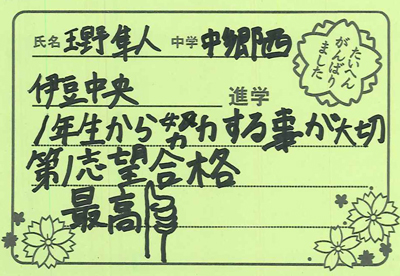 氏名 玉野隼人 中学 中郷西
たいへん
がんばり
ました
伊豆中央 進学
1年生から努力する事が大切
第1志望合格
最高